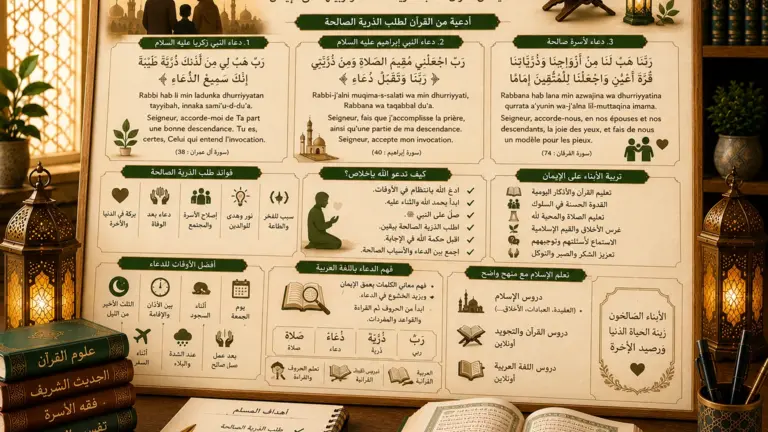 أدعية من القرآن لطلب الذرية الصالحة
1. دعاء النبي زكريا عليه السلام
رَبِّ هَبْ لِي مِن لَّدُنكَ ذُرِّيَّةً طَيِّبَةً
إِنَّكَ سَمِيعُ الدُّعَاءِ
Rabbi hab li min ladunka dhurriyyatan
tayyibah, innaka sami'u-d-du'a.
Seigneur, accorde-moi de Ta part
une bonne descendance. Tu es,
certes, Celui qui entend l'invocation.
(سورة آل عمران : 38)
2. دعاء النبي إبراهيم عليه السلام
رَبِّ اجْعَلْنِي مُقِيمَ الصَّلَاةِ وَمِن ذُرِّيَّتِي
رَبَّنَا وَتَقَبَّلْ دُعَاءِ
Rabbi-j'alni muqima-s-salati wa min dhurriyyati,
Rabbana wa taqabbal du'a.
Seigneur, fais que j'accomplisse la prière,
ainsi qu'une partie de ma descendance.
Seigneur, accepte mon invocation.
(سورة إبراهيم : 40)
3. دعاء لأسرة صالحة
رَبَّنَا هَبْ لَنَا مِنْ أَزْوَاجِنَا وَذُرِّيَّاتِنَا
قُرَّةَ أَعْيُنٍ وَاجْعَلْنَا لِلْمُتَّقِينَ إِمَامًا
Rabbana hab lana min azwajina wa dhurriyyatina
qurrata a'yunin wa-j'alna lil-muttaqina imama.
Seigneur, accorde-nous, en nos épouses et nos
descendants, la joie des yeux, et fais de nous
un modèle pour les pieux.
(سورة الفرقان : 74)
فوائد طلب الذرية الصالحة
بركة في الدنيا
والآخرة
دعاء بعد
الوفاة
إصلاح الأسرة
والمجتمع
نور وهدى
للوالدين
سبب للفخر
والطاعة
كيف تدعو الله بإخلاص؟
ادعُ الله بانتظام في الأوقات.
ابدأ بحمد الله والثناء عليه.
صلِّ على النبي ﷺ.
اطلب الذرية الصالحة بيقين.
اقبل حكمة الله في الإجابة.
اجمع بين الدعاء والأسباب الصالحة.
تربية الأبناء على الإيمان
تعليم القرآن والأذكار اليومية
القدوة الحسنة في السلوك
تعليم الصلاة والمحبة لله
غرس الأخلاق والقيم الإسلامية
الاستماع لأسئلتهم وتوجيههم
تعزيز الشكر والصبر والتوكل
أفضل الأوقات للدعاء
الثلث الأخير
من الليل
بين الأذان
والإقامة
أثناء
السجود
يوم
الجمعة
أثناء
عند الشدة
والبلاء
بعد عمل
صالح
فهم الدعاء باللغة العربية
فهم معاني الكلمات يعمق الإيمان
ويزيد الخشوع في الدعاء.
ابدأ من الحروف ثم القراءة
والقواعد والمفردات.
صَلَاة
صلاة
دُعَاءً
دعاء
ذُرِّيَّة
ذرية
رَبِّ
ربي
تعلم الحروف
والقراءة
القرآنية
العربية
القرآنية
تعلم الإسلام مع منهج واضح
دروس الإسلام
(العقيدة، العبادات، الأخلاق...)
دروس القرآن والتجويد
أونلاين
دروس اللغة العربية
أونلاين
الأبناء الصالحون
زينة الحياة الدنيا
ورصيد الآخرة
علوم القرآن
الحديث الشريف
فقه الأسرة
أهداف المسلم
طلب الذرية الصالحة